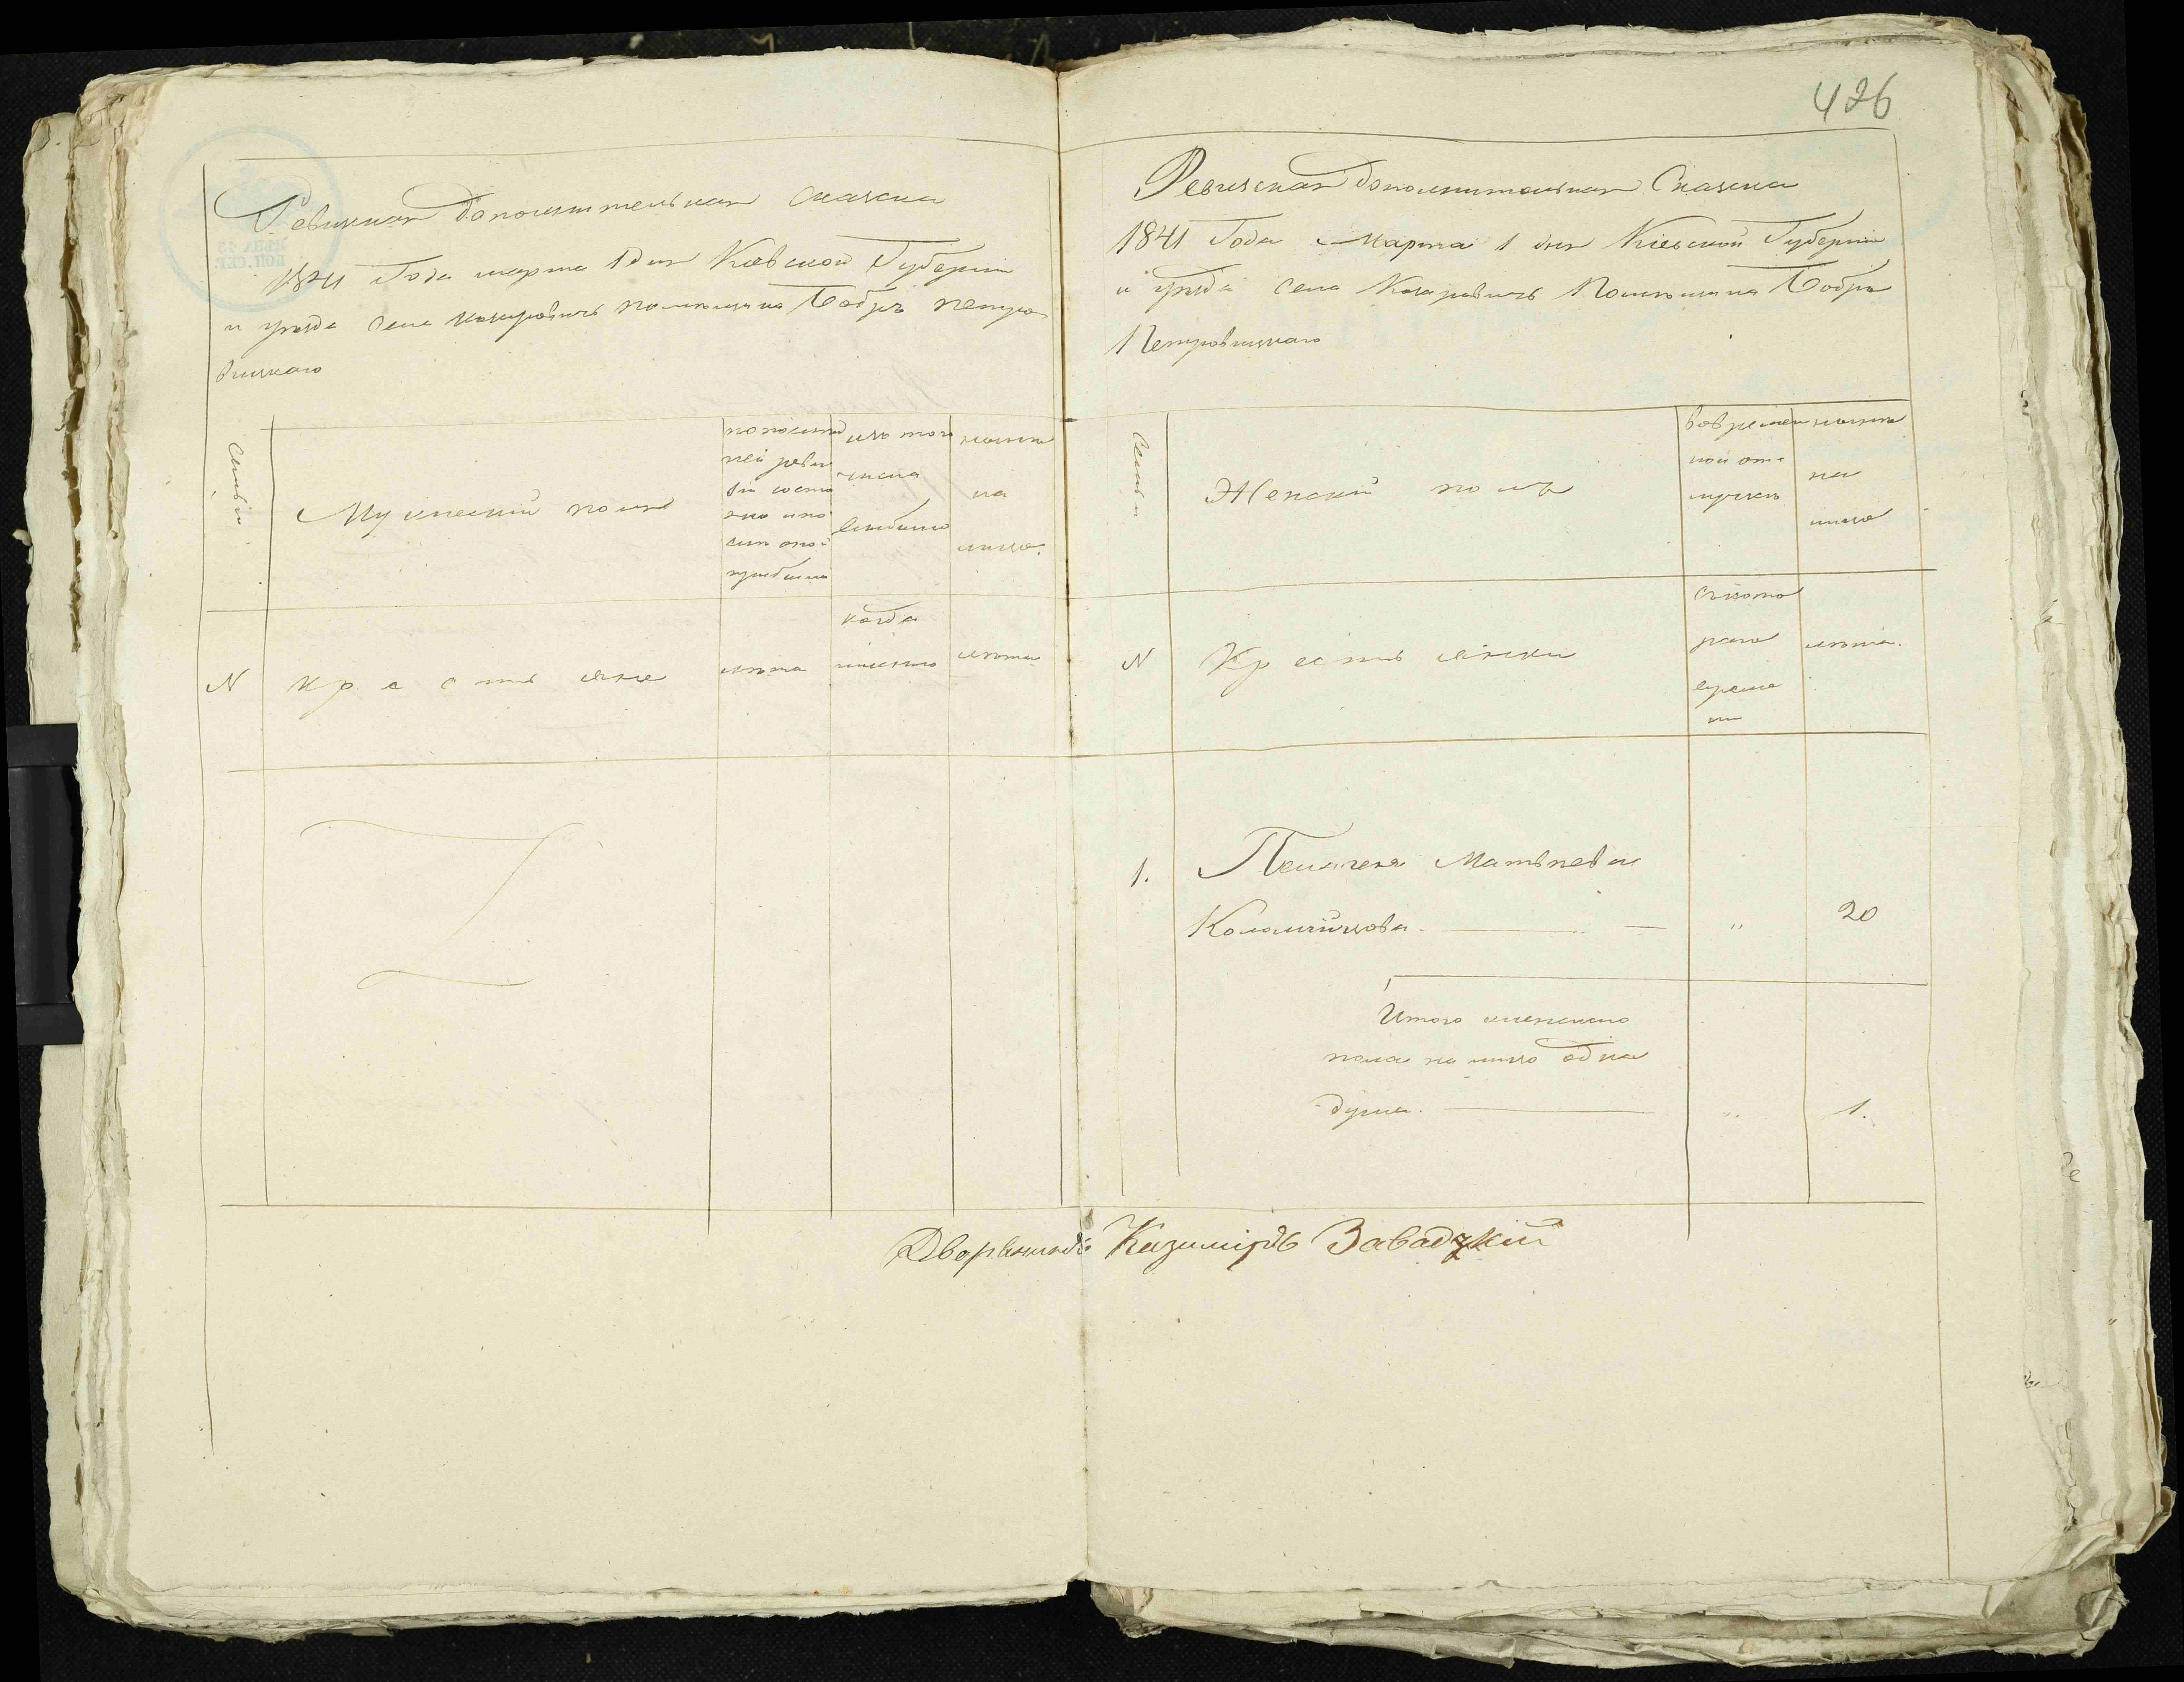 426
Ревизкая дополнительная сказка
1841 Года марта 1 дня Киевской Губернии
и уезда села Казаровичь помещика Бобръ петро
вицкаго
Семьи
Мужеский полъ
по послед
ней реви
зіи состо
яло и по
сле оной
прибыло
изъ того
числа
выбыло
ныне
на
лицо.
N
крестьяне
лета
когда
имянно
лета
Ревизская дополнительная Сказка
1841 Года Марта 1 дня Кіевской Губерніи
и уезда села Казаровичь Помещика Бобра
Петровицкаго
Семьи
Женский полъ
во времен
ной от
лучке
ныне
на
лицо
N
Крестьянки
съ кото
раго
време
ни
лета.
1.
Пелагея Матвеева
Коломийцова. — — " 20
Итого женскаго
пола на лицо одна
душа. — " 1.
Дворянинъ Казимиръ Завадзкий